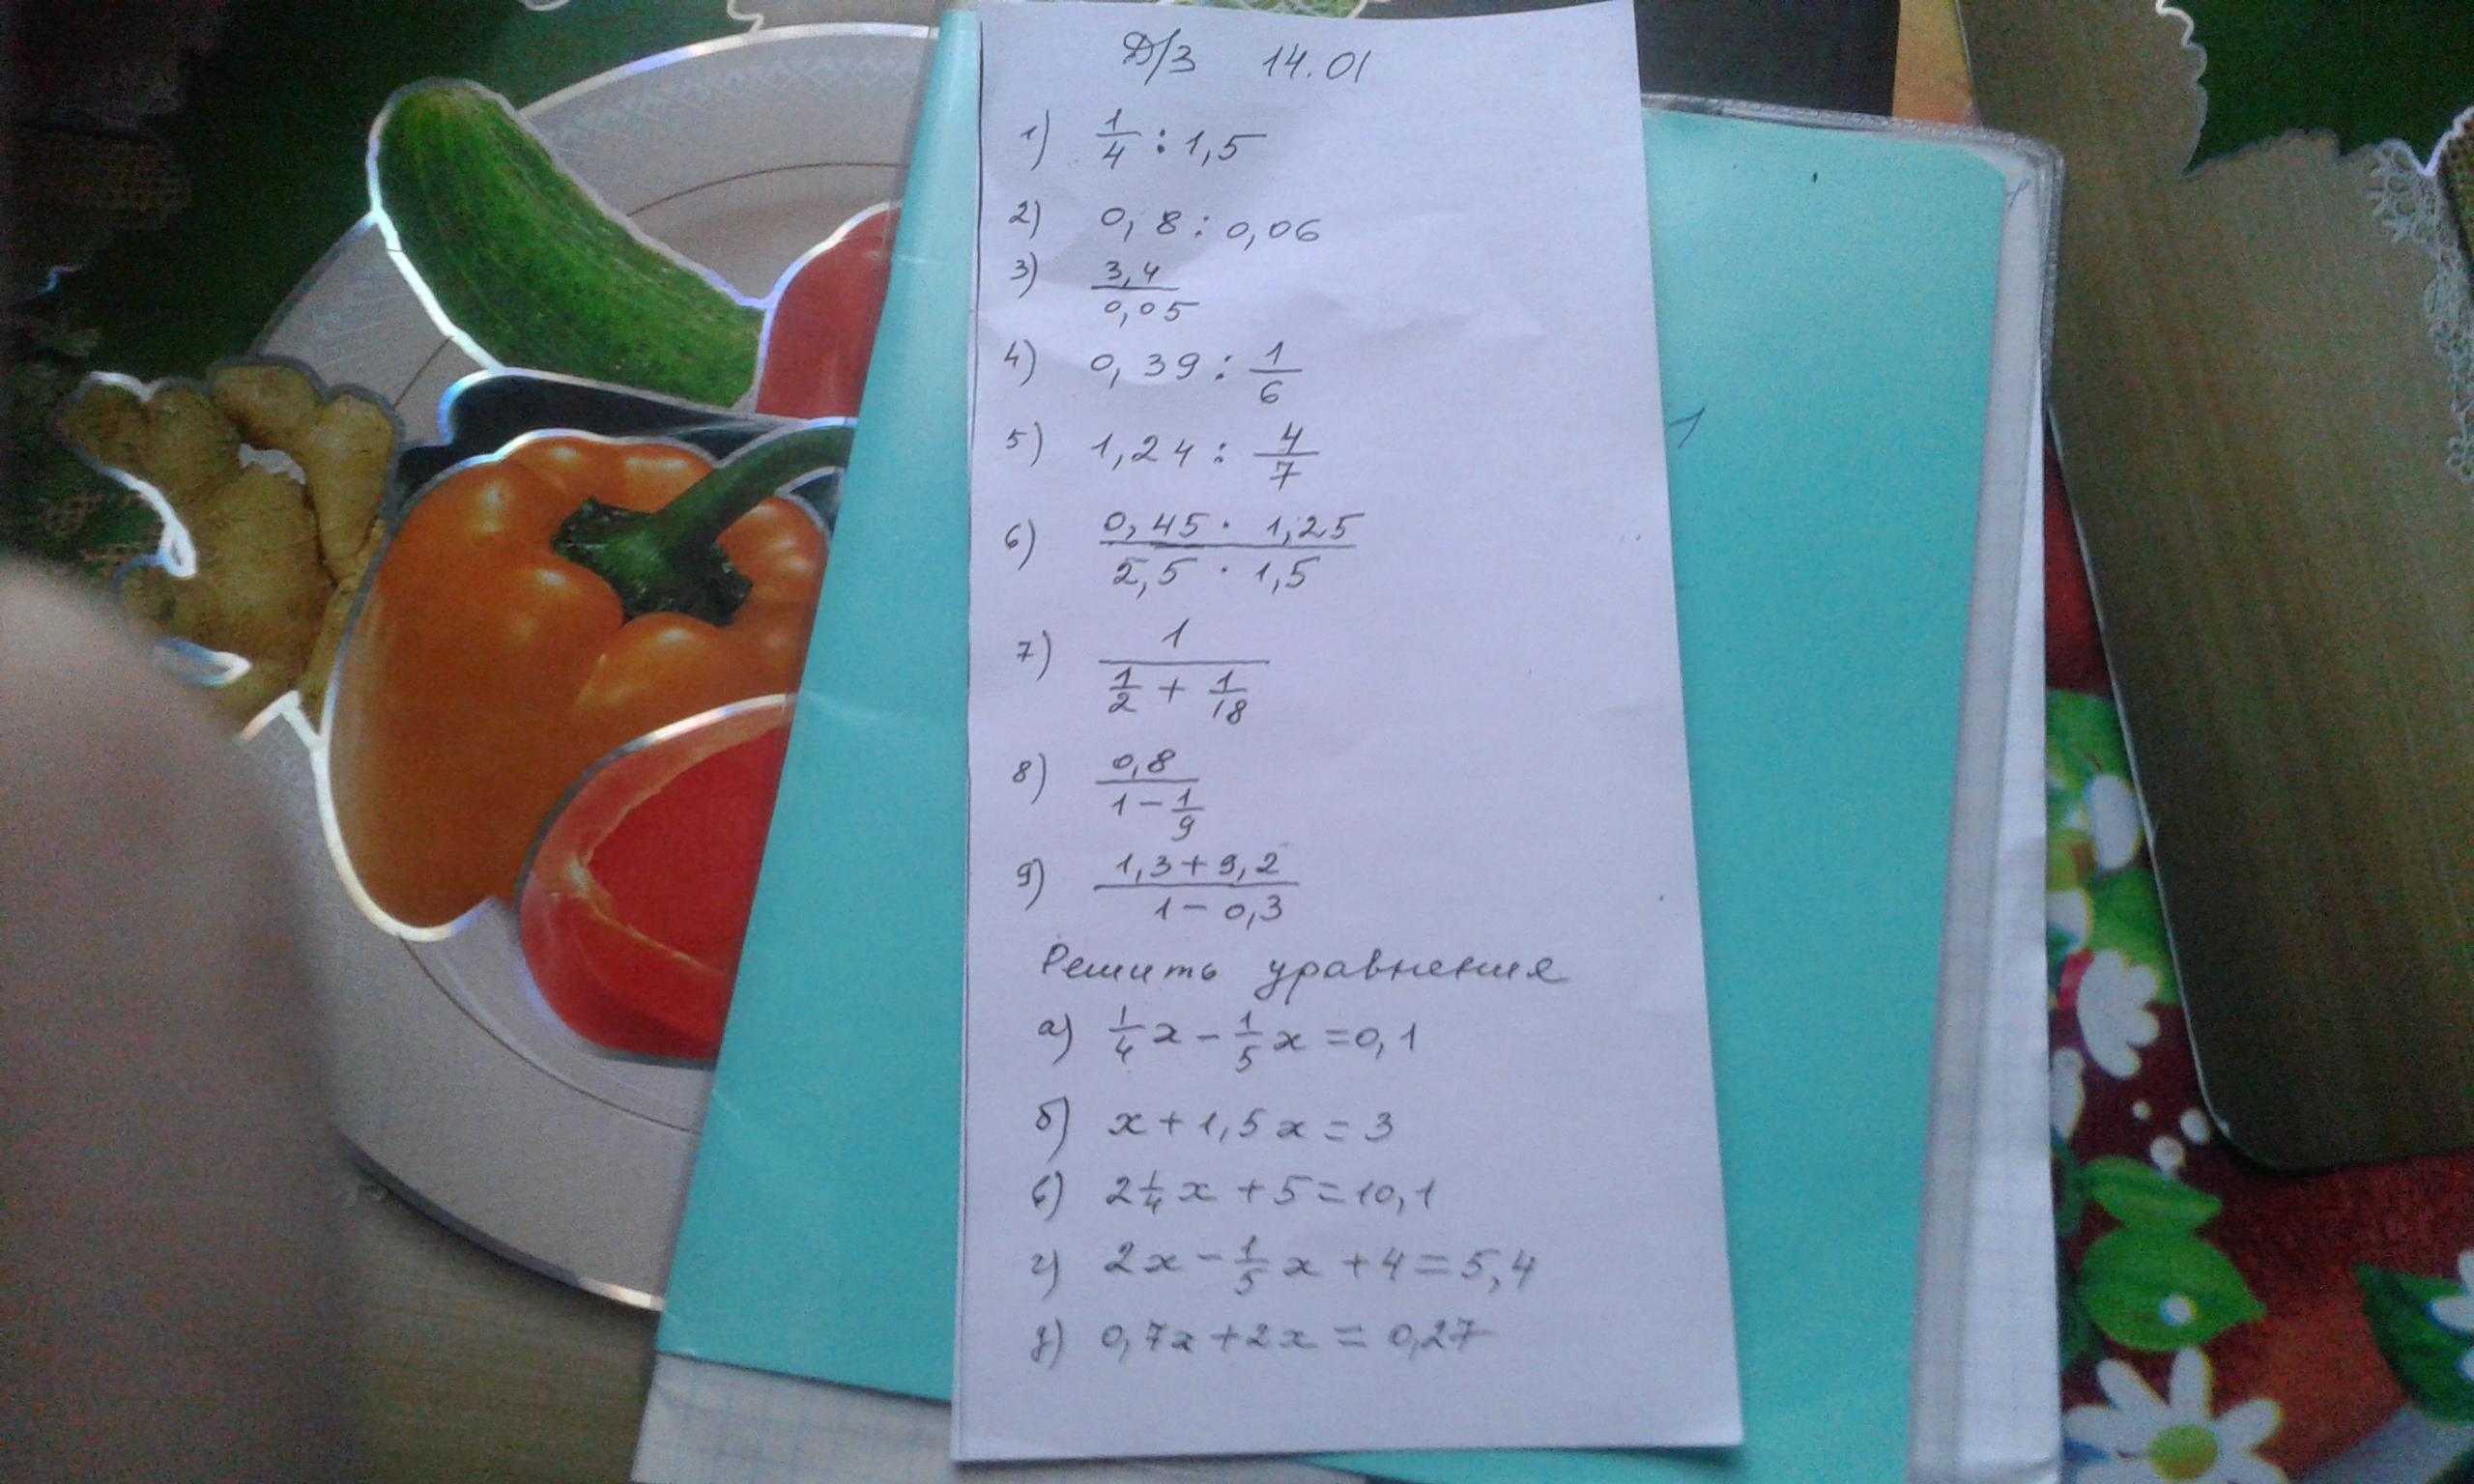 Д/З 14.01
1) 1/4 : 1,5
2) 0,8 : 0,06
3) 3,4/0,05
4) 0,39 : 1/6
5) 1,24 : 4/7
6) (0,45 · 1,25)/(2,5 · 1,5)
7) 1/(1/2 + 1/18)
8) 0,8/(1 - 1/9)
9) (1,3 + 9,2)/(1 - 0,3)
Решить уравнения
а) 1/4 x - 1/5 x = 0,1
б) x + 1,5x = 3
в) 2 1/4 x + 5 = 10,1
г) 2x - 1/5 x + 4 = 5,4
д) 0,7x + 2x = 0,27